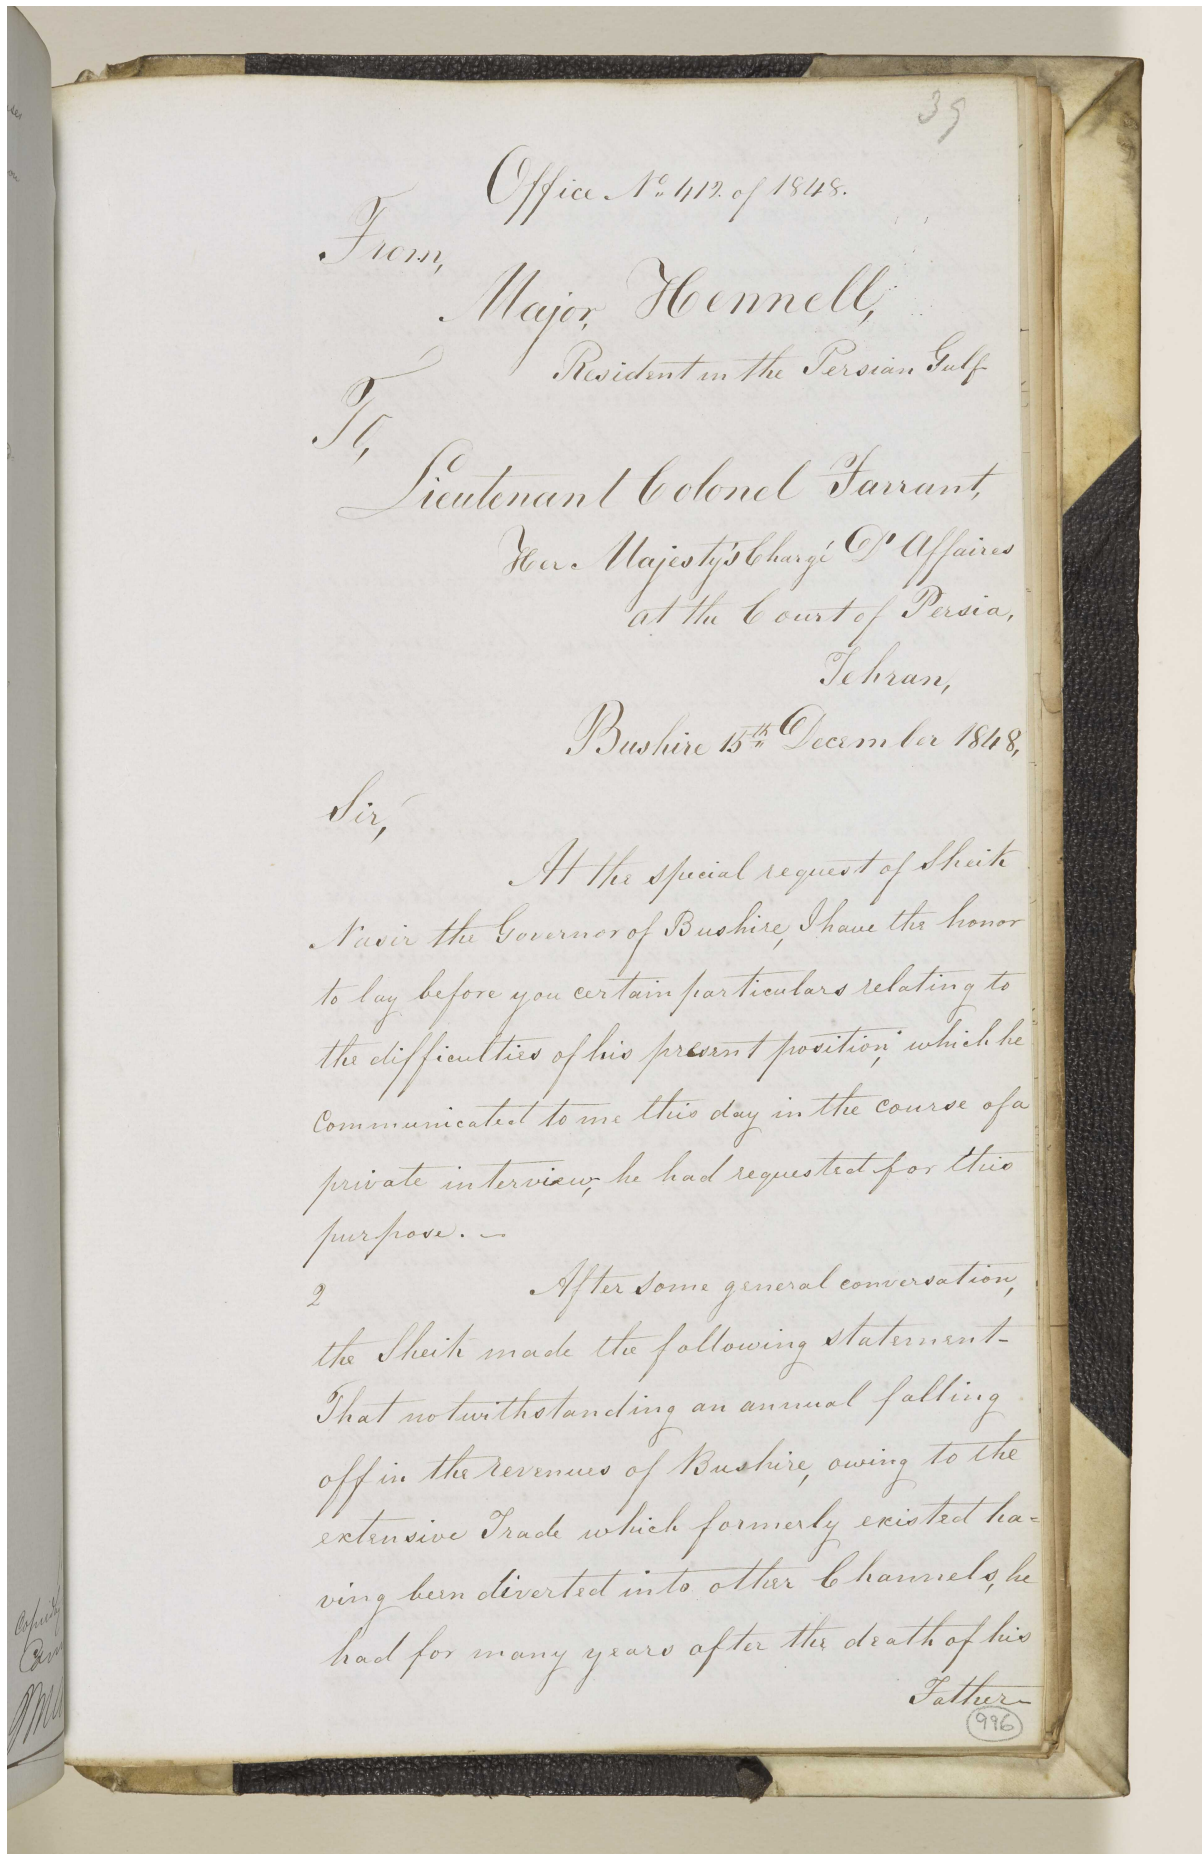 39
Office No. 412 of 1848.
From,
Major, Hennell,
Resident in the Persian Gulf
To,
Lieutenant Colonel Farrant,
Her Majesty's Chargé D'Affaires
at the Court of Persia,
Tehran,
Bushire 15th December 1848,
Sir,
At the special request of Sheik
Nasir the Governor of Bushire, I have the honor
to lay before you certain particulars relating to
the difficulties of his present position, which he
communicated to me this day in the course of a
private interview, he had requested for this
purpose. —
2 After some general conversation,
the Sheik made the following statement—
That notwithstanding an annual falling
off in the revenues of Bushire, owing to the
extensive Trade which formerly existed ha=
ving been diverted into other Channels, he
had for many years after the death of his
Father—
996